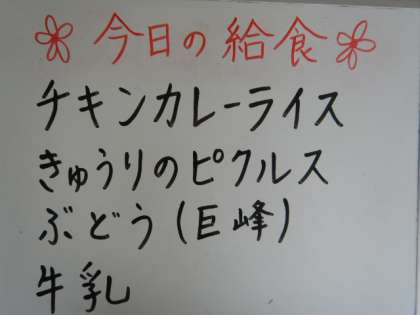 今日の給食
チキンカレーライス
きゅうりのピクルス
ぶどう(巨峰)
牛乳